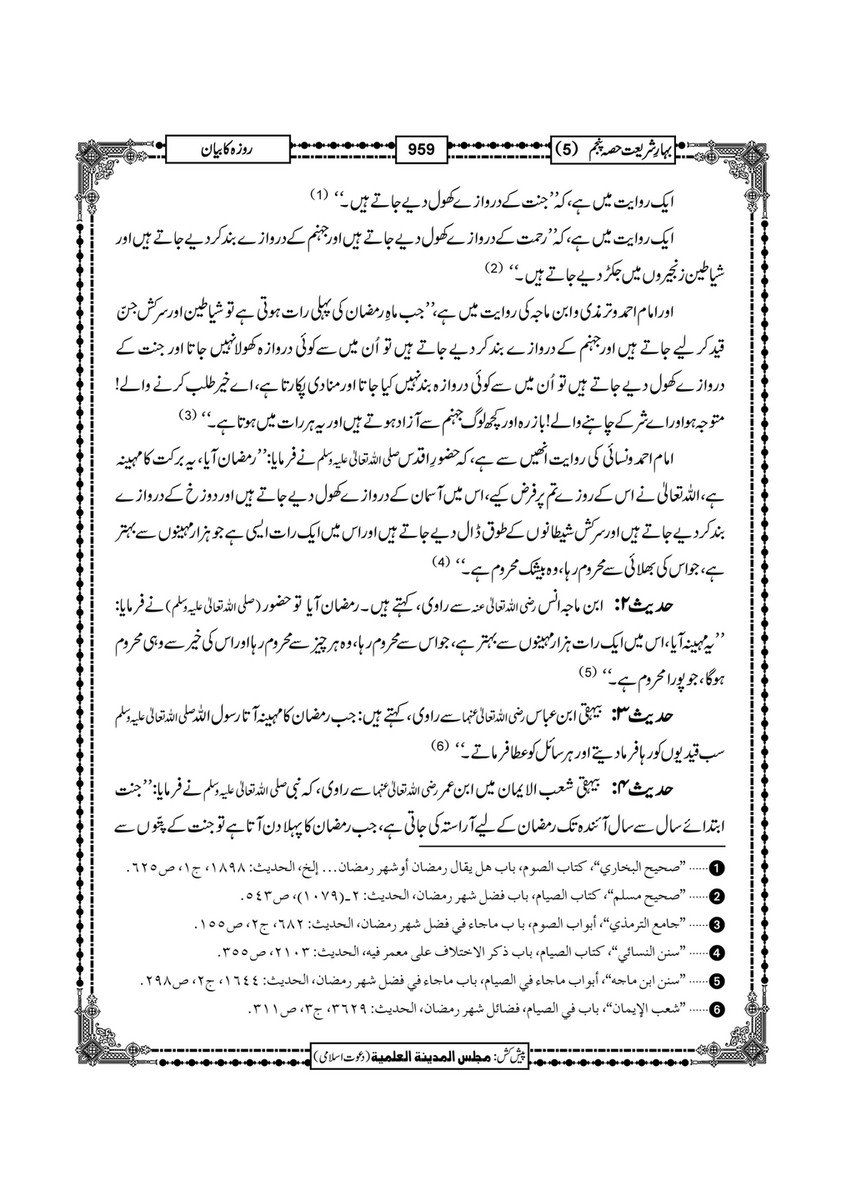 بہارِ شریعت حصہ پنجم (5)
959
روزہ کا بیان
ایک روایت میں ہے، کہ ’’جنت کے دروازے کھول دیے جاتے ہیں۔‘‘ (1)
ایک روایت میں ہے، کہ ’’رحمت کے دروازے کھول دیے جاتے ہیں اور جہنم کے دروازے بند کر دیے جاتے ہیں اور
شیاطین زنجیروں میں جکڑ دیے جاتے ہیں۔‘‘ (2)
اور امام احمد و ترمذی و ابن ماجہ کی روایت میں ہے، ’’جب ماہِ رمضان کی پہلی رات ہوتی ہے تو شیاطین اور سرکش جن
قید کر لیے جاتے ہیں اور جہنم کے دروازے بند کر دیے جاتے ہیں تو اُن میں سے کوئی دروازہ کھولا نہیں جاتا اور جنت کے
دروازے کھول دیے جاتے ہیں تو اُن میں سے کوئی دروازہ بند نہیں کیا جاتا اور منادی پکارتا ہے، اے خیر طلب کرنے والے!
متوجہ ہو اور اے شر کے چاہنے والے! باز رہ اور کچھ لوگ جہنم سے آزاد ہوتے ہیں اور یہ ہر رات میں ہوتا ہے۔‘‘ (3)
امام احمد و نسائی کی روایت انھیں سے ہے، کہ حضورِ اقدس صلی اللہ تعالیٰ علیہ وسلم نے فرمایا: ’’رمضان آیا، یہ برکت کا مہینہ
ہے، اللہ تعالیٰ نے اس کے روزے تم پر فرض کیے، اس میں آسمان کے دروازے کھول دیے جاتے ہیں اور دوزخ کے دروازے
بند کر دیے جاتے ہیں اور سرکش شیطانوں کے طوق ڈال دیے جاتے ہیں اور اس میں ایک رات ایسی ہے جو ہزار مہینوں سے بہتر
ہے، جو اس کی بھلائی سے محروم رہا، وہ بیشک محروم ہے۔‘‘ (4)
حدیث ۲: ابن ماجہ انس رضی اللہ تعالیٰ عنہ سے راوی، کہتے ہیں۔ رمضان آیا تو حضور (صلی اللہ تعالیٰ علیہ وسلم) نے فرمایا:
’’یہ مہینہ آیا، اس میں ایک رات ہزار مہینوں سے بہتر ہے، جو اس سے محروم رہا، وہ ہر چیز سے محروم رہا اور اس کی خیر سے وہی محروم
ہوگا، جو پورا محروم ہے۔‘‘ (5)
حدیث ۳: بیہقی ابن عباس رضی اللہ تعالیٰ عنہما سے راوی، کہتے ہیں: جب رمضان کا مہینہ آتا رسول اللہ صلی اللہ تعالیٰ علیہ وسلم
سب قیدیوں کو رہا فرما دیتے اور ہر سائل کو عطا فرماتے۔‘‘ (6)
حدیث ۴: بیہقی شعب الایمان میں ابن عمر رضی اللہ تعالیٰ عنہما سے راوی، کہ نبی صلی اللہ تعالیٰ علیہ وسلم نے فرمایا: ’’جنت
ابتدائے سال سے سال آئندہ تک رمضان کے لیے آراستہ کی جاتی ہے، جب رمضان کا پہلا دن آتا ہے تو جنت کے پتّوں سے
❶...... ”صحيح البخاري“، كتاب الصوم، باب هل يقال رمضان أو شهر رمضان... إلخ، الحديث: ۱۸۹۸، ج۱، ص۶۲۵.
❷...... ”صحيح مسلم“، كتاب الصيام، باب فضل شهر رمضان، الحديث: ۲ـ(۱۰۷۹)، ص۵۴۳.
❸...... ”جامع الترمذي“، أبواب الصوم، باب ماجاء في فضل شهر رمضان، الحديث: ۶۸۲، ج۲، ص۱۵۵.
❹...... ”سنن النسائي“، كتاب الصيام، باب ذكر الاختلاف على معمر فيه، الحديث: ۲۱۰۳، ص۳۵۵.
❺...... ”سنن ابن ماجه“، أبواب ماجاء في الصيام، باب ماجاء في فضل شهر رمضان، الحديث: ۱۶۴۴، ج۲، ص۲۹۸.
❻...... ”شعب الإيمان“، باب في الصيام، فضائل شهر رمضان، الحديث: ۳۶۲۹، ج۳، ص۳۱۱.
پیش کش: مجلس المدينة العلمية (دعوت اسلامی)